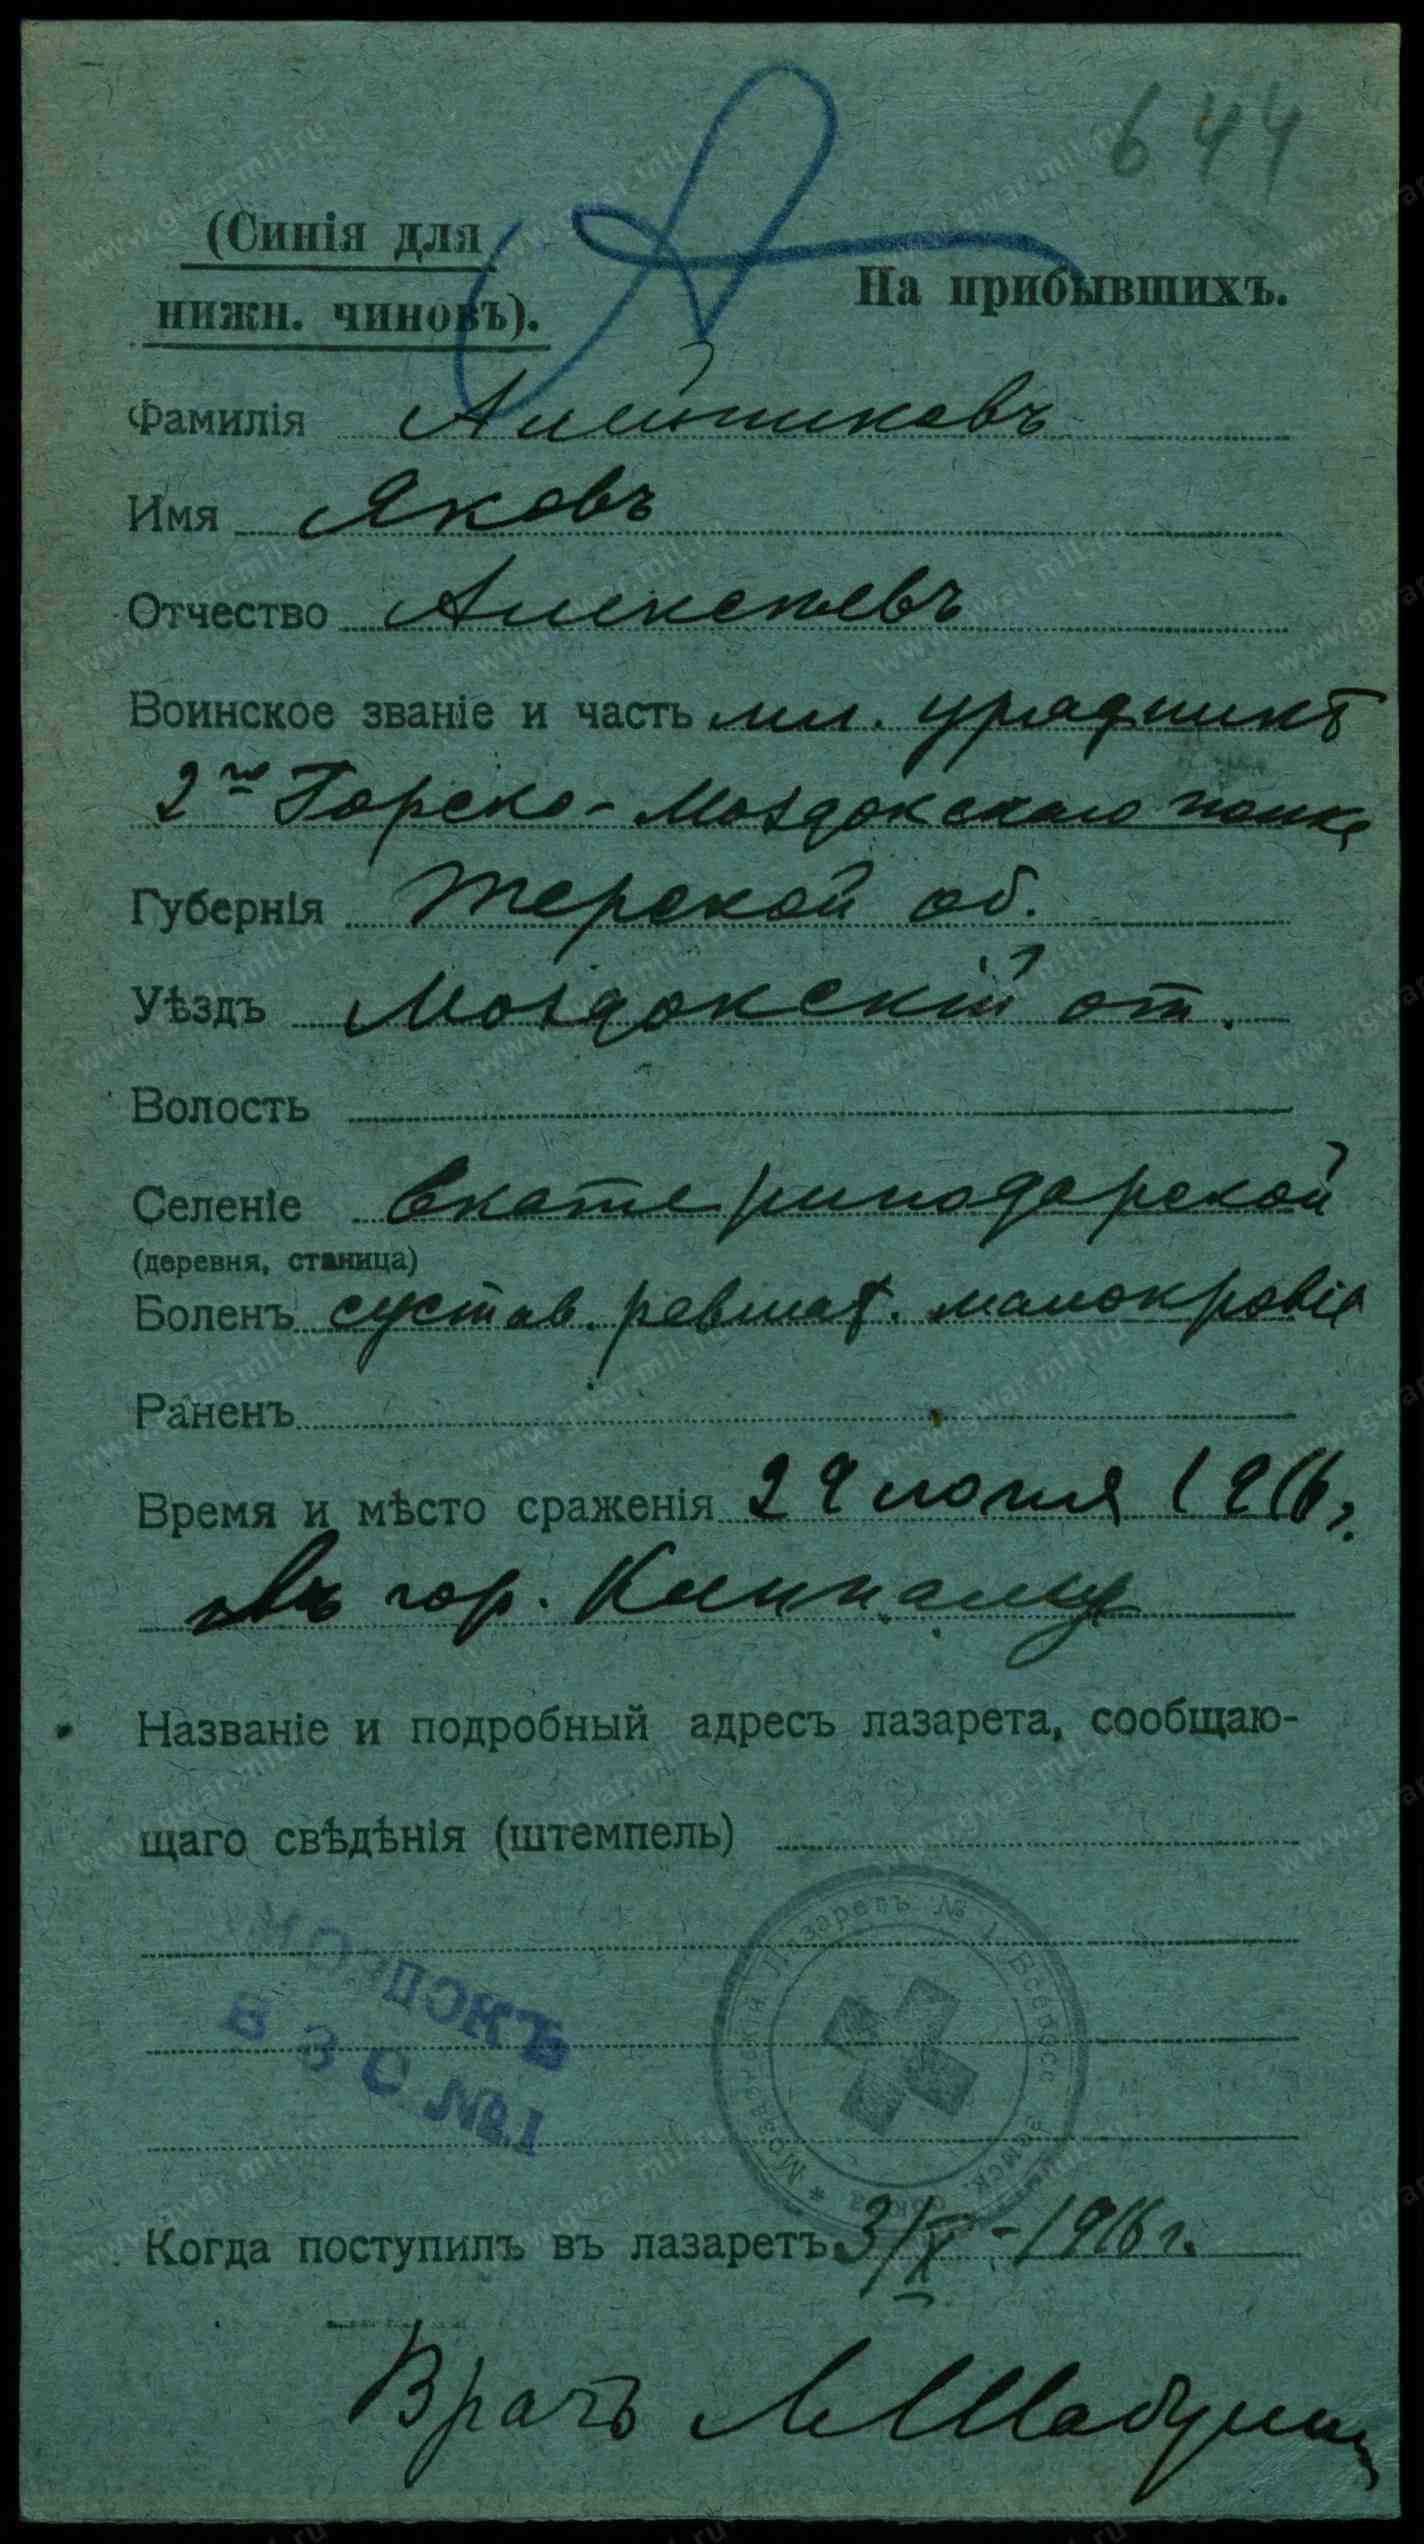 644
(Синія для
нижн. чиновъ).
На прибывшихъ.
Фамилія Алейниковъ
Имя Яковъ
Отчество Алексѣевъ
Воинское званіе и часть мл. урядникъ
2го Горско-Моздокскаго полка
Губернія Терской об.
Уѣздъ Моздокскій от.
Волость
Селеніе Екатериноdарской
(деревня, станица)
Боленъ сустав. ревмат. малокровіе
Раненъ
Время и мѣсто сраженія 29 июля 1916 г.
въ гор.
Названіе и подробный адресъ лазарета, сообщаю-
щаго свѣдѣнія (штемпель)
МОЗДОКЪ
В З С №1
Моздокскій Лазаретъ № 1 Всеросс. Земск. союза *
Когда поступилъ въ лазаретъ 3/X-1916 г.
Врачъ